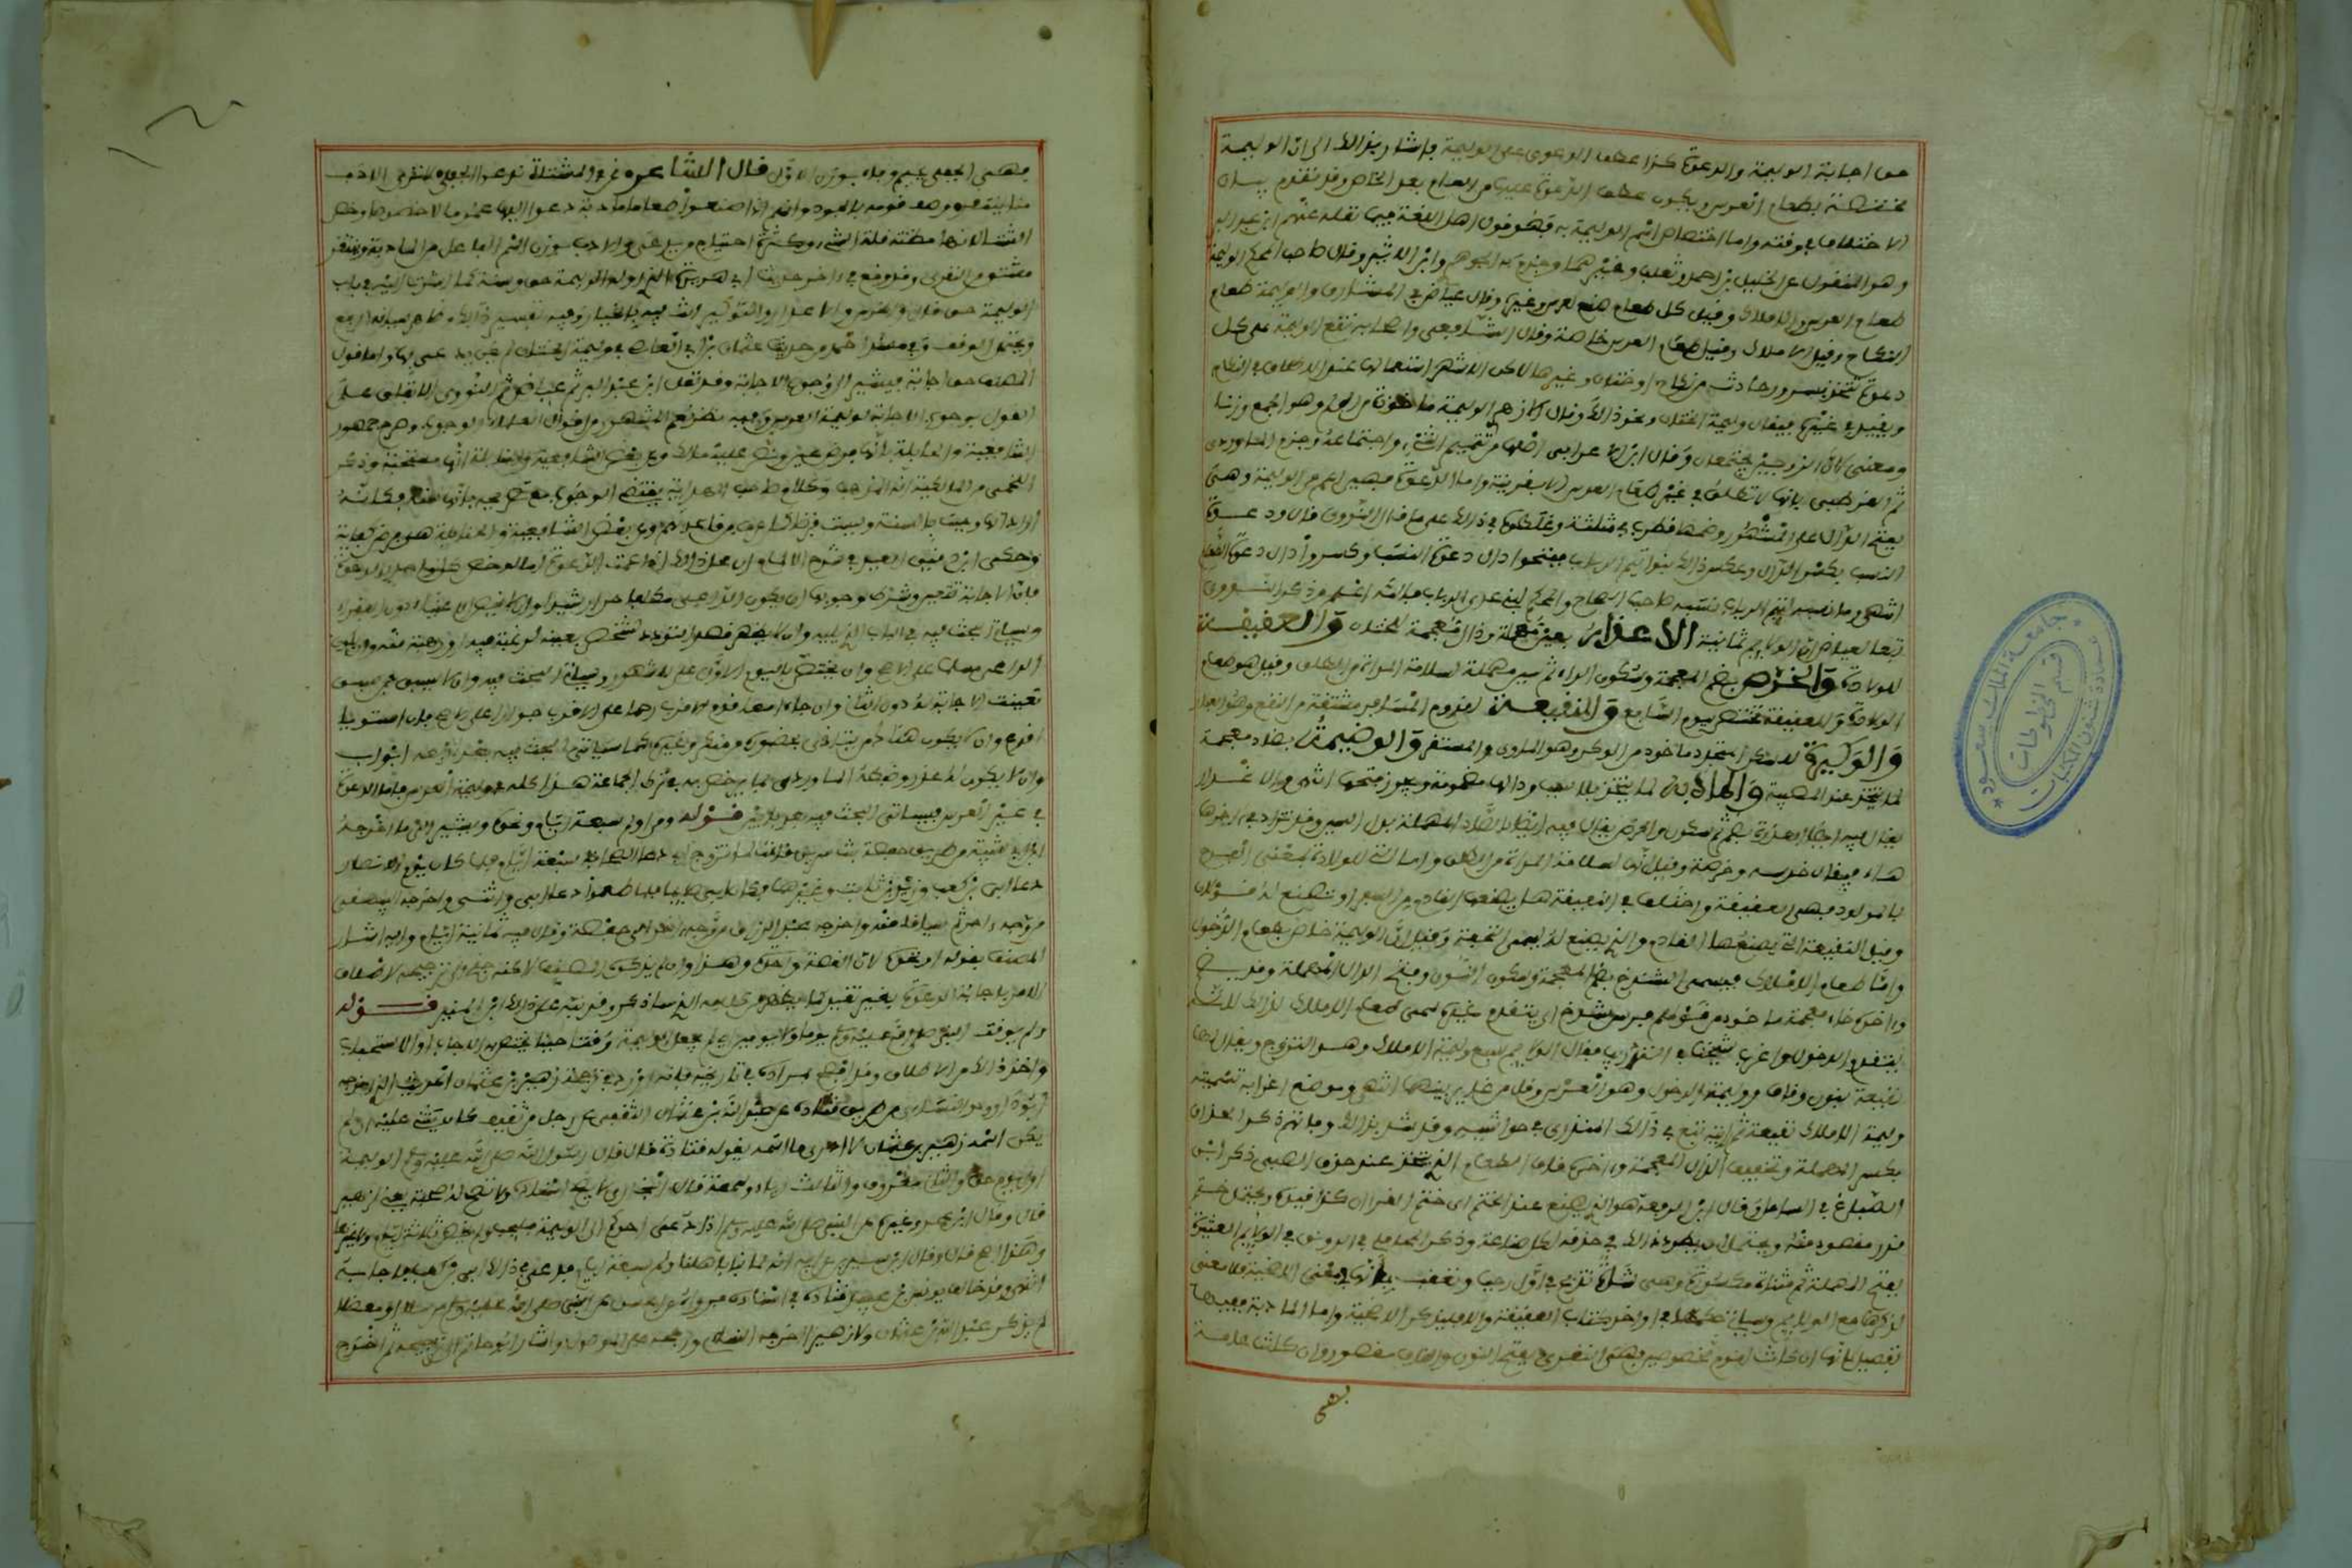 حق اجابة الوليمة والدعوة كذا عطف الدعوى على الوليمة فاشار بذلك الى ان الوليمة
مختصة بطعام العرس ويكون عطف الدعوة عليها من العام بعد الخاص وقد تقدم بيان
الاختلاف في وقته واما اختصاص اسم الوليمة به فهو قول اهل اللغة فيما نقله عنهم ابن عبد البر
وهو المنقول عن الخليل بن احمد وثعلب وغيرهما وجزم به الجوهري وابن الاثير وقال صاحب المحكم الوليمة
طعام العرس والاملاك وقيل كل طعام صنع لعرس وغيره وقال عياض في المشارق والوليمة طعام
النكاح وقيل الاملاك وقيل طعام العرس خاصة وقال الشافعي واصحابه تقع الوليمة على كل
دعوة تتخذ بسرور حادث من نكاح او ختان وغيرهما لاكن الاشهر استعمالها عند الاطلاق في النكاح
ويقيد في غيره فيقال وليمة الختان ونحو ذلك وقال الازهري الوليمة ماخوذة من الولم وهو الجمع وزنا
ومعنى لان الزوجين يجتمعان وقال ابن الاعرابي اصلها من تتميم الشيء واجتماعه وجزم الماوردي
ثم القرطبي بانها لا تطلق في غير طعام العرس الا بقرينة واما الدعوة فهي اعم من الوليمة وهي
بفتح الدال على المشهور وضمها قطرب في مثلثه وغلطوه في ذلك على ما قال النووي قال ودعوة
النسب بكسر الدال وعكس ذلك بنو تيم الرباب ففتحوا دال دعوة النسب وكسروا دال دعوة الطعام
انتهى وما نسبه لتيم الرباب نسبه صاحبا الصحاح والمحكم لبني عدي الرباب فالله اعلم وذكر النووي
تبعا لعياض ان الولائم ثمانية الاعذار بعين مهملة وذال معجمة للختان والعقيقة
للولادة والخرس بضم المعجمة وسكون الراء ثم سين مهملة لسلامة المراة من الطلق وقيل هو طعام
الولادة والعقيقة تختص بيوم السابع والنقيعة لقدوم المسافر مشتقة من النقع وهو الغبار
والوكيرة للسكن المتجدد ماخوذ من الوكر وهو الماوى والمستقر والوضيمة بضاد معجمة
لما يتخذ عند المصيبة والمادبة لما يتخذ بلا سبب ودالها مضمومة ويجوز فتحها انتهى والاعذار
يقال فيه ايضا العذرة بضم ثم سكون والخرس يقال فيه ايضا بالصاد المهملة بدل السين وقد تزاد في اخرها
هاء فيقال خرسه وخرصة وقيل انها لسلامة المراة من الطلق واما التي للولادة بمعنى الفرح
بالمولود فهي العقيقة واختلف في النقيعة هل يصنعها القادم من السفر او تصنع له قولان
وقيل النقيعة التي يصنعها القادم والتي يصنع له تسمى التحفة وقيل ان الوليمة خاص بطعام الدخول
واما طعام الاملاك فيسمى الشندخ بضم المعجمة وسكون النون وفتح الدال المهملة وقد تضم
واخره خاء معجمة ماخوذ من قولهم فرس شندخ اي يتقدم غيره سمى طعام الاملاك بذلك لانه
يتقدم الدخول واغرب شيخنا في التدريب فقال الولائم سبع وليمة الاملاك وهو التزوج ويقال لها
نقيعة بنون وقاف ووليمة الدخول وهو العرس وقل من غاير بينهما انتهى وموضع اغرابه تسميته
وليمة الاملاك نقيعة ثم رايته تبع في ذلك المنذري في حواشيه وقد شذ بذلك وفاتهم ذكر الحذاق
بكسر المهملة وتخفيف الذال المعجمة واخره قاف الطعام الذي يتخذ عند حذق الصبي ذكره ابن
الصباغ في الشامل وقال ابن الرفعة هو الذي يصنع عند الختم اي ختم القران كذا قيده ويحتمل ختم
قدر مقصود منه ويحتمل ان يطرد ذلك في حذقه لكل صناعة وذكر المحاملي في الرونق في الولائم العتيرة
بفتح المهملة ثم مثناة مكسورة وهي شاة تذبح في اول رجب وتعقب بانها في معنى الاضحية فلا معنى
لذكرها مع الولائم وسياتي حكمها في اواخر كتاب العقيقة والا فليذكر الاضحية واما المادبة ففيها
تفصيل لانها ان كانت لقوم مخصوصين فهي النقرى بفتح النون والقاف مقصور وان كانت عامة
فهي
فهي الجفلى بجيم وفاء بوزن الاول قال الشاعر نحن في المشتاة ندعو الجفلى لا ترى الادب
منا ينتقر وصف قومه بالجود وانهم اذا صنعوا طعاما مادبة دعوا اليها عموما لا خصوصا وخص
الشتاء لانها مظنة قلة الشيء وكثرة احتياج من يدعى والادب بوزن اسم الفاعل من المادبة وينتقر
مشتق من النقرى وقد وقع في اخر حديث ابي هريرة الذي اوله الوليمة حق وسنة كما اشرت اليه في باب
الوليمة حق قال والخرس والاعذار والتوكير انت فيه بالخيار وفيه تفسير ذلك وظاهر سياقه الرفع
ويحتمل الوقف وفي مسند احمد من حديث عثمان بن ابي العاص في وليمة الختان لم يكن يدعى لها واما قول
المصنف حق اجابة فيشير الى وجوب الاجابة وقد نقل ابن عبد البر ثم عياض ثم النووي الاتفاق على
القول بوجوب الاجابة لوليمة العرس وفيه نظر نعم المشهور من اقوال العلماء الوجوب وصرح جمهور
الشافعية والحنابلة بانها فرض عين ونص عليه مالك وعن بعض الشافعية والحنابلة انها مستحبة وذكر
اللخمي من المالكية انه المذهب وكلام صاحب الهداية يقتضي الوجوب مع تصريحه بانها سنة فكانه
اراد انها وجبت بالسنة وليست فرضا كما عرف من قاعدتهم وعن بعض الشافعية والحنابلة هي فرض كفاية
وحكى ابن دقيق العيد في شرح الالمام ان محل ذلك اذا عمت الدعوة اما لو خص كل واحد بالدعوة
فان الاجابة تتعين وشرط وجوبها ان يكون الداعي مكلفا حرا رشيدا وان لا يخص الاغنياء دون الفقراء
وسياتي البحث فيه في الباب الذي يليه وان لا يظهر قصد التودد لشخص بعينه لرغبة فيه او رهبة منه وان يكون
الداعي مسلما على الاصح وان يختص باليوم الاول على المشهور وسياتي البحث فيه وان لا يسبق فمن سبق
تعينت الاجابة له دون الثاني وان جاءا معا قدم الاقرب رحما على الاقرب جوارا على الاصح فان استويا
اقرع وان لا يكون هناك من يتاذى بحضوره من منكر وغيره كما سياتي البحث فيه بعد اربعة ابواب
وان لا يكون له عذر وضبطه الماوردي بما يرخص به في ترك الجماعة هذا كله في وليمة العرس فاما الدعوة
في غير العرس فسياتي البحث فيه بعد بابين قوله ومن اولم سبعة ايام ونحوه يشير الى ما اخرجه
ابن ابي شيبة من طريق حفصة بنت سيرين قالت لما تزوج ابي دعا الصحابة سبعة ايام فلما كان يوم الانصار
دعا ابي بن كعب وزيد بن ثابت وغيرهما فكان ابي صائما فلما طعموا دعا ابي واثنى واخرجه البيهقي
من وجه اخر اتم سياقا منه واخرجه عبد الرزاق من وجه اخر الى حفصة وقال فيه ثمانية ايام واليه اشار
المصنف بقوله او نحوه لان القصة واحدة وهذا وان لم يذكره المصنف لاكنه جنح الى ترجيحه لاطلاق
الامر باجابة الدعوة بغير تقييد كما يظهر من كلامه الذي ساذكره وقد نبه على ذلك ابن المنير قوله
ولم يوقت النبي صلى الله عليه وسلم يوما ولا يومين اي لم يجعل للوليمة وقتا معينا يختص به الايجاب او الاستحباب
واخذ ذلك من الاطلاق وقد افصح بمراده في تاريخه فانه اورد في ترجمة زهير بن عثمان الحديث الذي اخرجه
ابو داوود والنسائي من طريق قتادة عن عبد الله بن عثمان الثقفي عن رجل من ثقيف كان يثنى عليه ان لم
يكن اسمه زهير بن عثمان فلا ادري ما اسمه يقوله قتادة قال قال رسول الله صلى الله عليه وسلم الوليمة
اول يوم حق والثاني معروف والثالث رياء وسمعة قال البخاري لا يصح اسناده ولا تصح له صحبة يعني لزهير
قال وقال ابن عمر وغيره عن النبي صلى الله عليه وسلم اذا دعي احدكم الى الوليمة فليجب ولم يخص ثلاثة ايام ولا غيرها
وهذا اصح قال وقال ابن سيرين عن ابيه انه لما بنى باهله اولم سبعة ايام فدعى في ذلك ابي بن كعب فاجابه
انتهى وقد خالف يونس بن عبيد قتادة في اسناده فرواه عن الحسن عن النبي صلى الله عليه وسلم مرسلا او معضلا
لم يذكر عبد الله بن عثمان ولا زهيرا اخرجه النسائي ورجحه على الموصول واشار ابو حاتم الى ترجيحه ثم اخرج
جامعة الملك سعود
قسم المخطوطات
عمادة شؤون المكتبات